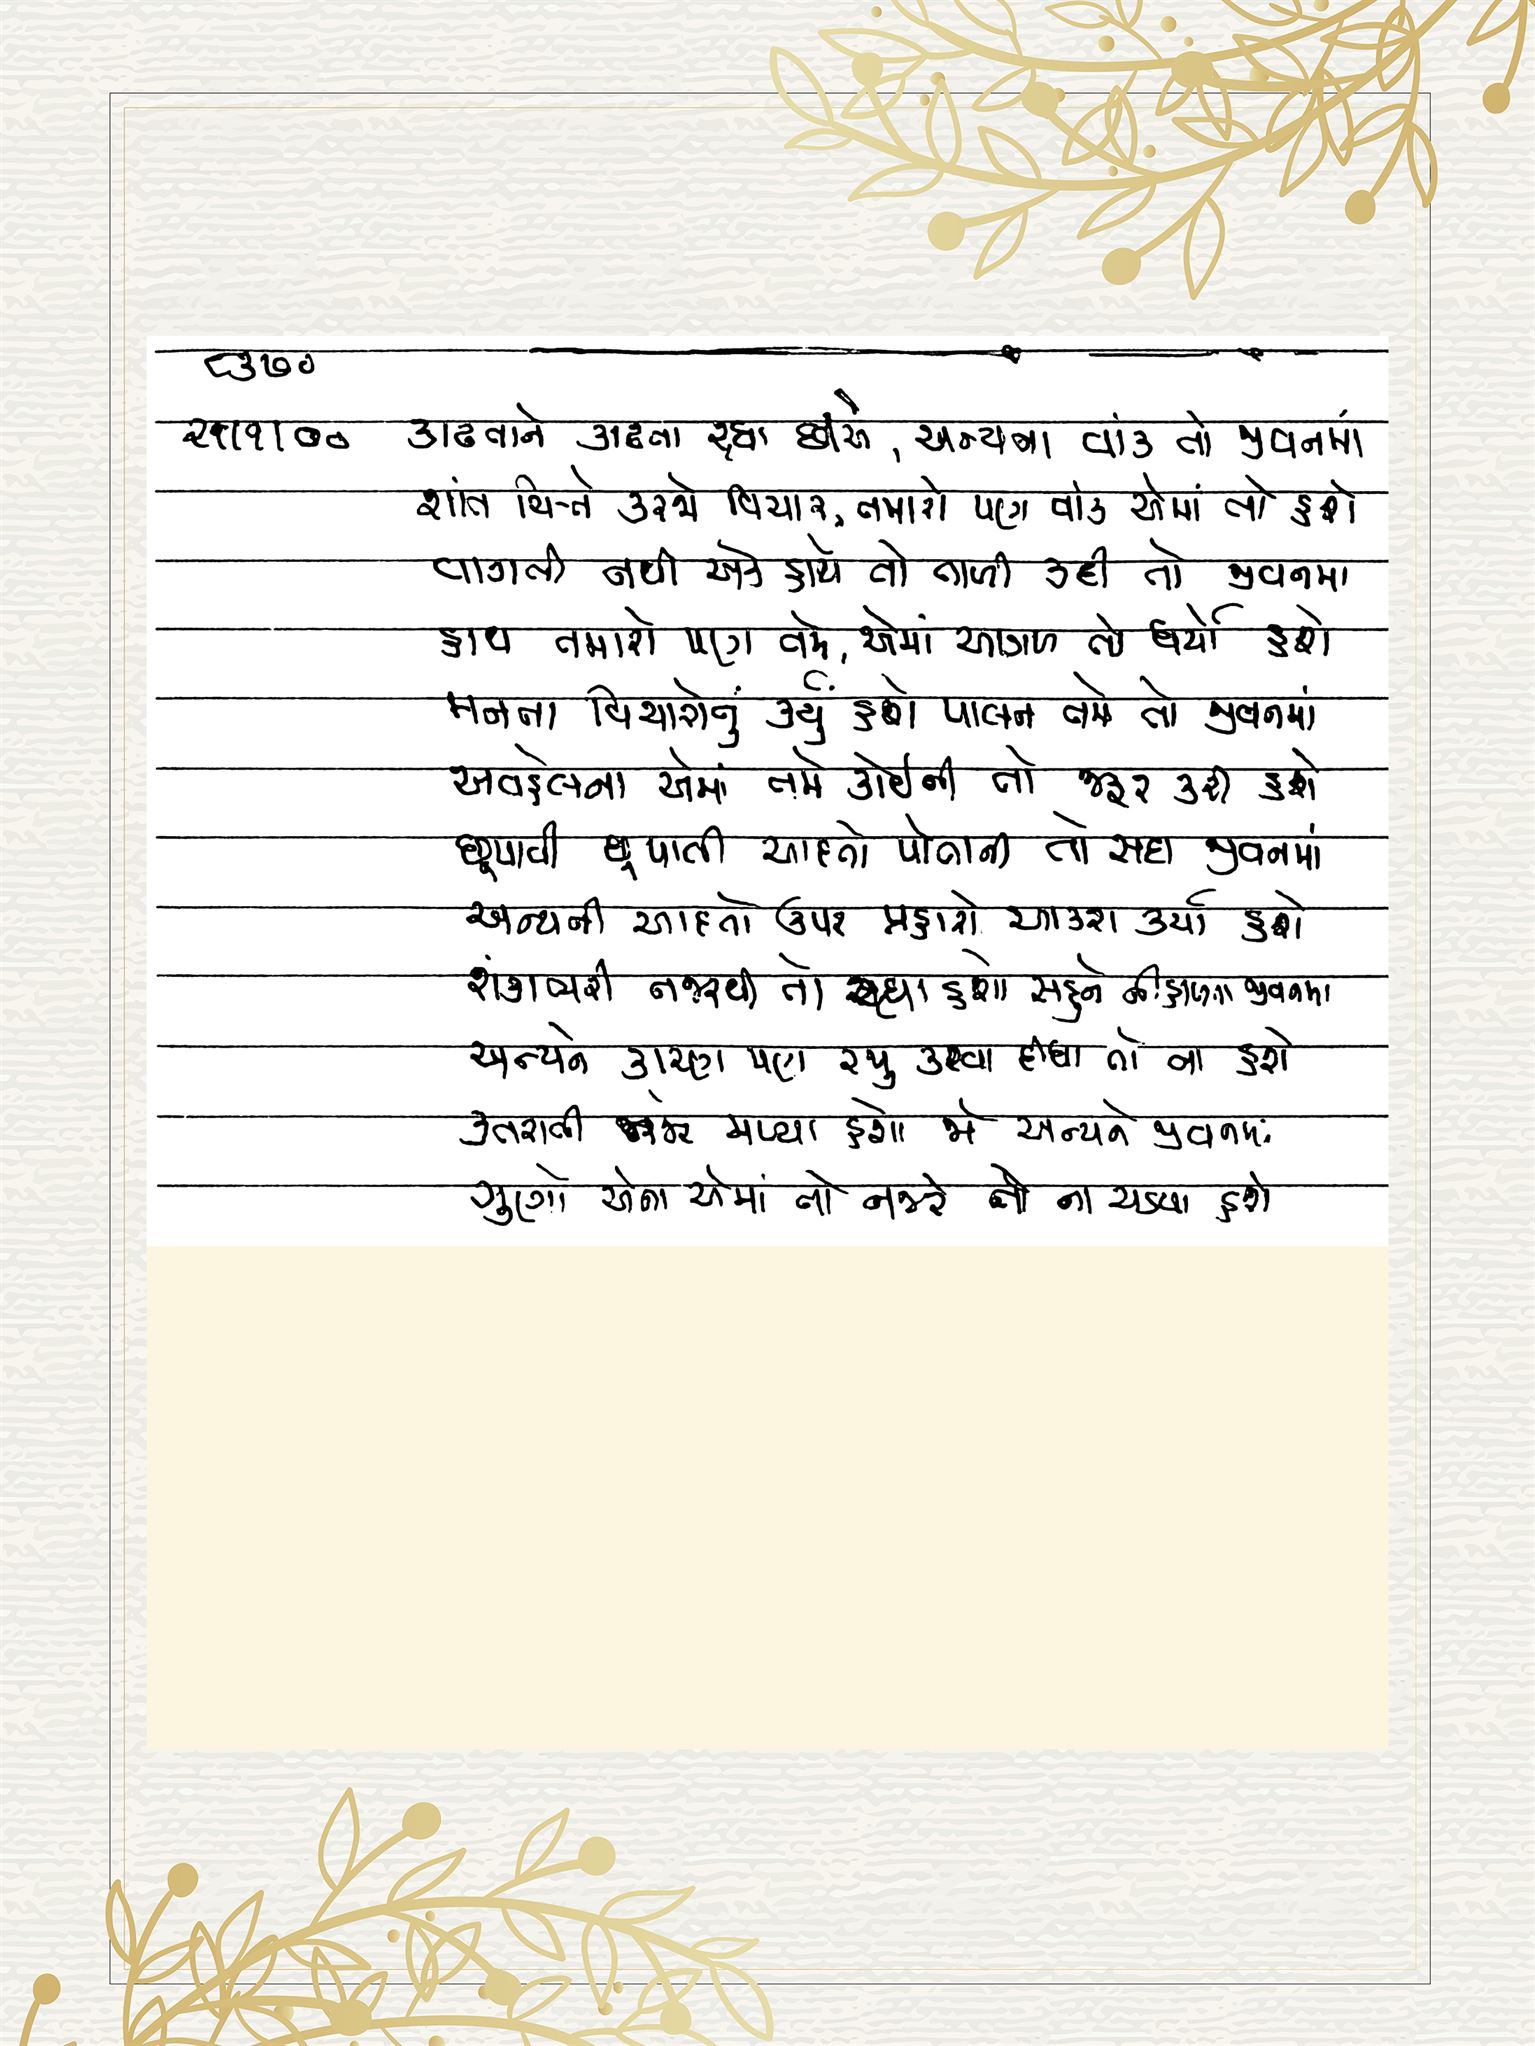 ૮૩૭૦
૨૧/૧/૦૦ કાઢતાને કાઢતા રહ્યા છોરે, અન્યના વાંક તો જીવનમાં
શાંત ચિત્તે કરજો વિચાર, તમારો પણ વાંક એમાં તો હશે
વાગતી નથી એક હાથે તો તાળી કદી તો જીવનમા
હાથ તમારો પણ તમે, એમાં આગળ તો ધર્યો હશે
મનના વિચારોનું કર્યું હશે પાલન તમે તો જીવનમાં
અવહેલના એમાં તમે કોઈની તો જરૂર કરી હશે
છૂપાવી છૂપાવી આદતો પોતાની તો સદા જીવનમાં
અન્યની આદતો ઉપર પ્રહારો આકરા કર્યા હશે
શંકાભરી નજરથી તો રહ્યા હશો સહુને નીહાળતા જીવનમા
અન્યને કારણ પણ રજુ કરવા દીધા તો ના હશે
કતરાતી નજરે મળ્યા હશો જો અન્યને જીવનમાં
ગુણો એના એમાં તો નજરે તો ના ચડયા હશે